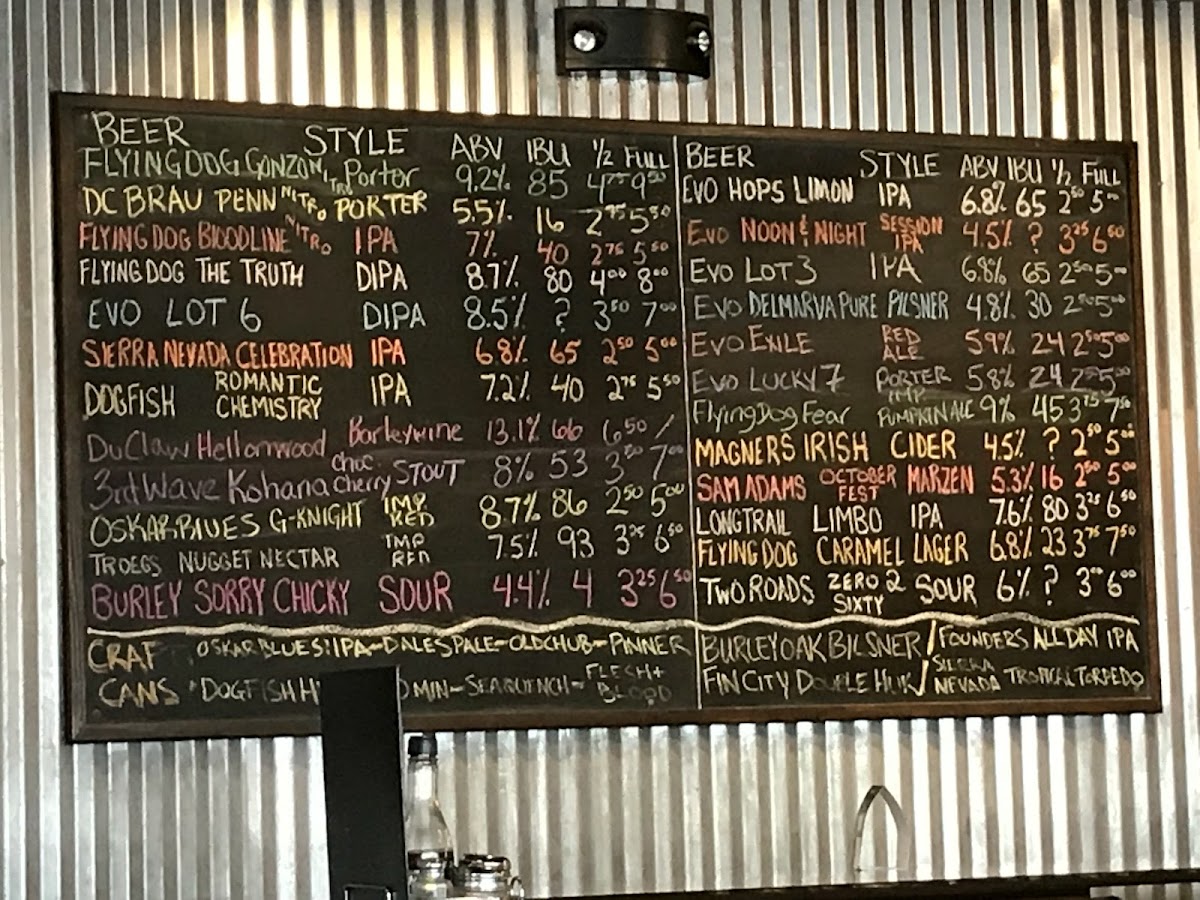 BEER STYLE ABV IBU 1/2 FULL
FLYING DOG GONZO NITRO Porter 9.2% 85 4.75 9.50
DC BRAU PENN NITRO PORTER 5.5% 16 2.75 5.50
FLYING DOG BLOODLINE NITRO IPA 7% 40 2.75 5.50
FLYING DOG THE TRUTH DIPA 8.7% 80 4.00 8.00
EVO LOT 6 DIPA 8.5% ? 3.50 7.00
SIERRA NEVADA CELEBRATION IPA 6.8% 65 2.50 5.00
DOGFISH ROMANTIC CHEMISTRY IPA 7.2% 40 2.75 5.50
DuClaw Hellonwood Barleywine 13.1% 66 6.50 /
3rd Wave Kohana Choc. Cherry STOUT 8% 53 3.50 7.00
OSKAR BLUES G-KNIGHT IMP RED 8.7% 86 2.50 5.00
TROEGS NUGGET NECTAR IMP RED 7.5% 93 3.25 6.50
BURLEY SORRY CHICKY SOUR 4.4% 4 3.25 6.50
CRAF CANS
OSKAR BLUES: IPA - DALES PALE - OLD CHUB - PINNER
*DOGFISH MIN - SEAQUENCH - FLESH + BLOOD
BEER STYLE ABV IBU 1/2 FULL
EVO HOPS LIMON IPA 6.8% 65 2.50 5.00
EVO NOON & NIGHT SESSION IPA 4.5% ? 3.25 6.50
EVO LOT 3 IPA 6.8% 65 2.50 5.00
EVO DELMARVA PURE PILSNER 4.8% 30 2.50 5.00
EVO EXILE RED ALE 5.9% 24 2.50 5.00
EVO LUCKY 7 PORTER 5.8% 24 2.50 5.00
Flying Dog Fear IMP PUMPKIN ALE 9% 45 3.75 7.50
MAGNERS IRISH CIDER 4.5% ? 2.50 5.00
SAM ADAMS OCTOBER FEST MARZEN 5.3% 16 2.50 5.00
LONGTRAIL LIMBO IPA 7.6% 80 3.25 6.50
FLYING DOG CARAMEL LAGER 6.8% 23 3.75 7.50
TWO ROADS ZERO 2 SIXTY SOUR 6% ? 3.00 6.00
BURLEY OAK BILSNER / FOUNDERS ALL DAY IPA
FIN CITY DOUBLE HUK / SIERRA NEVADA TROPICAL TORPEDO